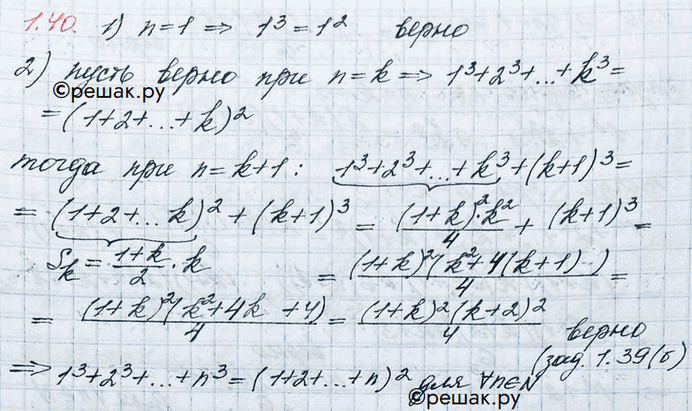 1.40. 1) n=1 ⇒ 1³=1² верно
2) пусть верно при n=k ⇒ 1³+2³+...+k³=
©решак.ру
=(1+2+...+k)²
тогда при n=k+1: 1³+2³+...+k³+(k+1)³=
=(1+2+...k)²+(k+1)³ = (1+k)²·k²/4 + (k+1)³ =
S_k = (1+k)/2 · k = (1+k)²(k²+4(k+1))/4 =
= (1+k)²(k²+4k+4)/4 = (1+k)²(k+2)²/4 верно
(зад. 1.39(б)
⇒ 1³+2³+...+n³=(1+2+...+n)² для ∀n∈N
©решак.ру